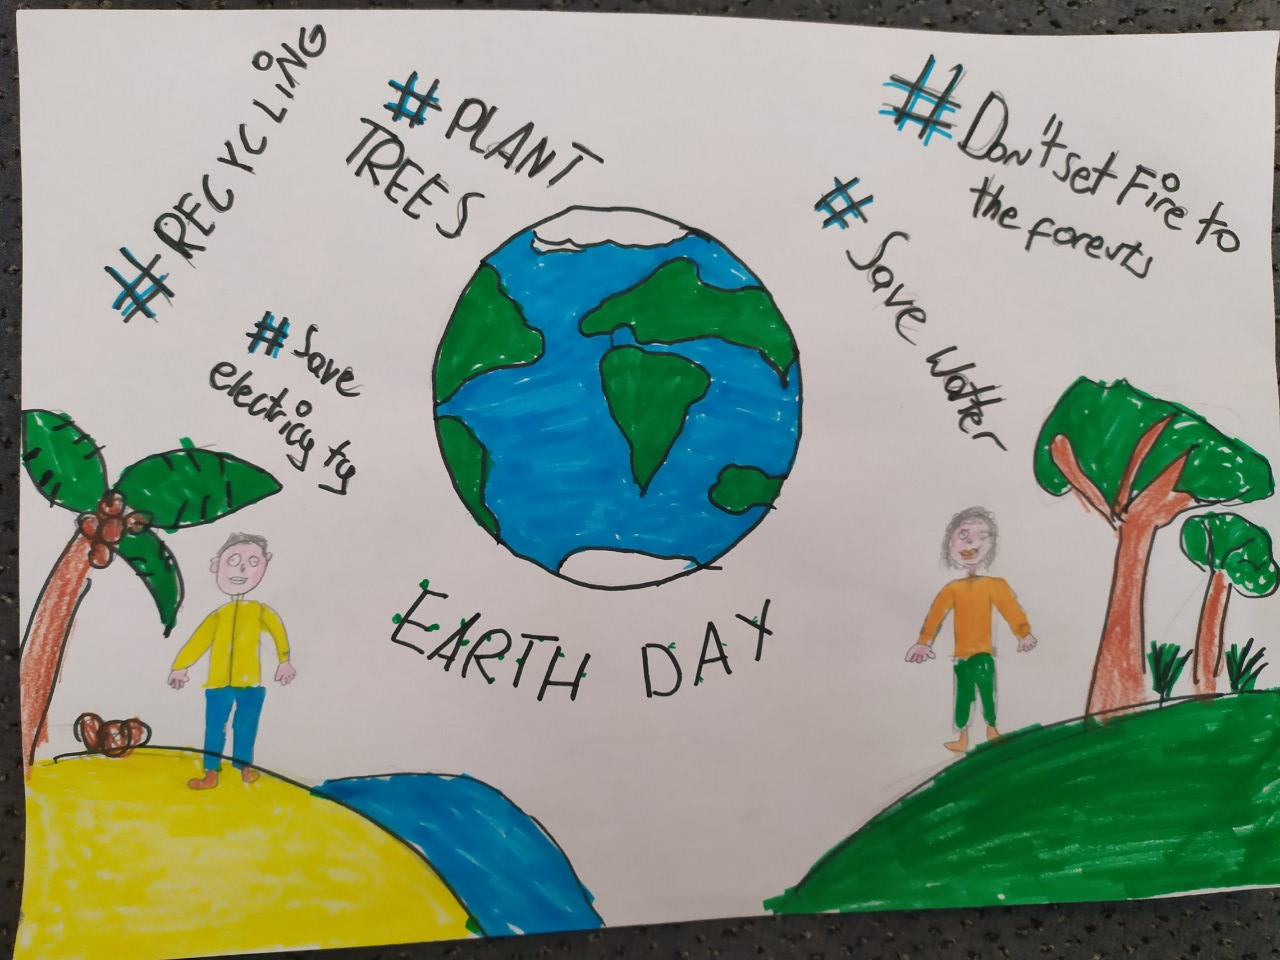 # RECYCLING
# PLANT
TREES
# Save
electricity
# Don't set Fire to
the forests
# Save Watter
EARTH DAY